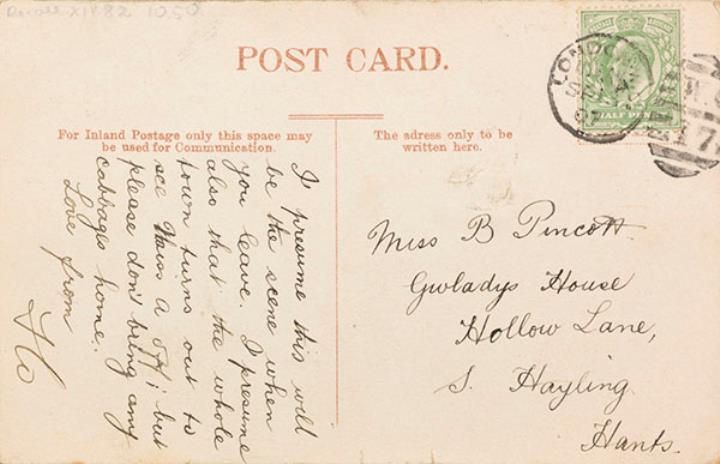 Recall XII.82 10.50
POST CARD.
For Inland Postage only this space may
be used for Communication.
The adress only to be
written here.
I presume this will
be the scene when
you leave. I presume
also that the whole
town turns out to
see Miss a off; but
please don't bring any
cabbages home.
Love from
Flo
Miss B Pincott
Gwladys House
Hollow Lane,
S. Hayling
Hants.
LONDON
SE
07
W.C
17
HALF PENNY